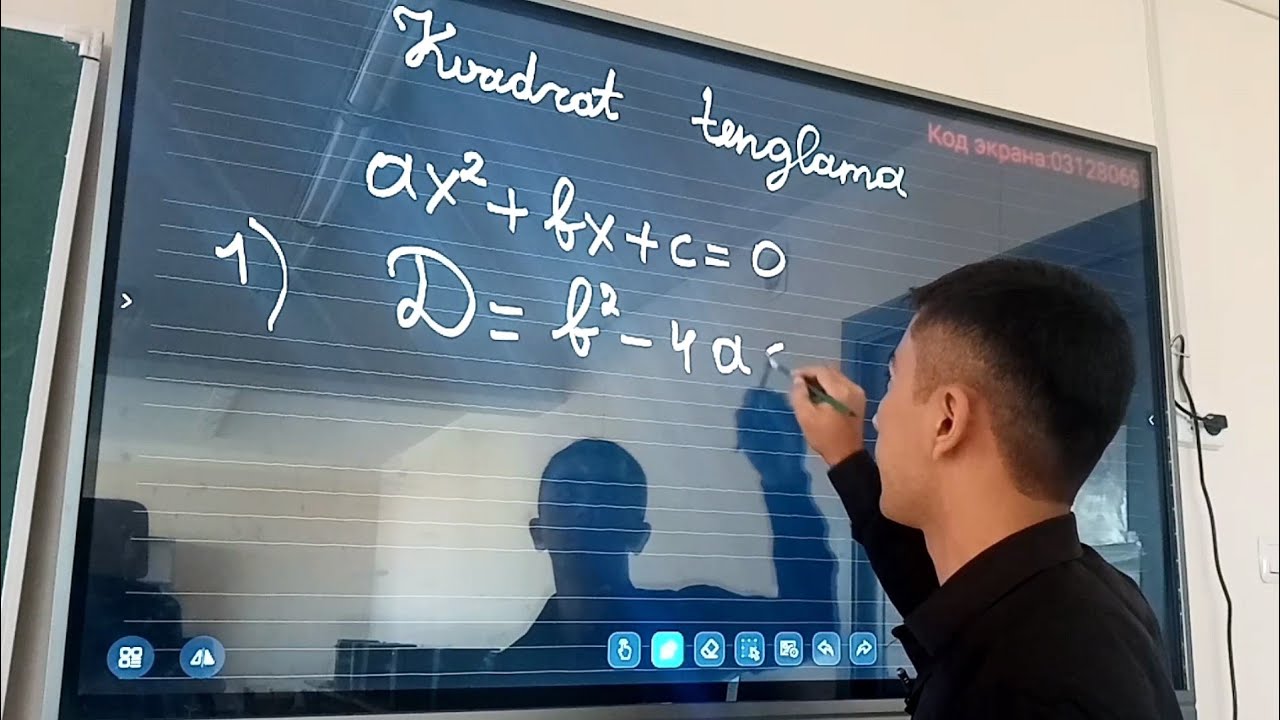 Kvadrat tenglama
Код экрана:03128069
ax² + bx + c = 0
1) D = b² - 4ac